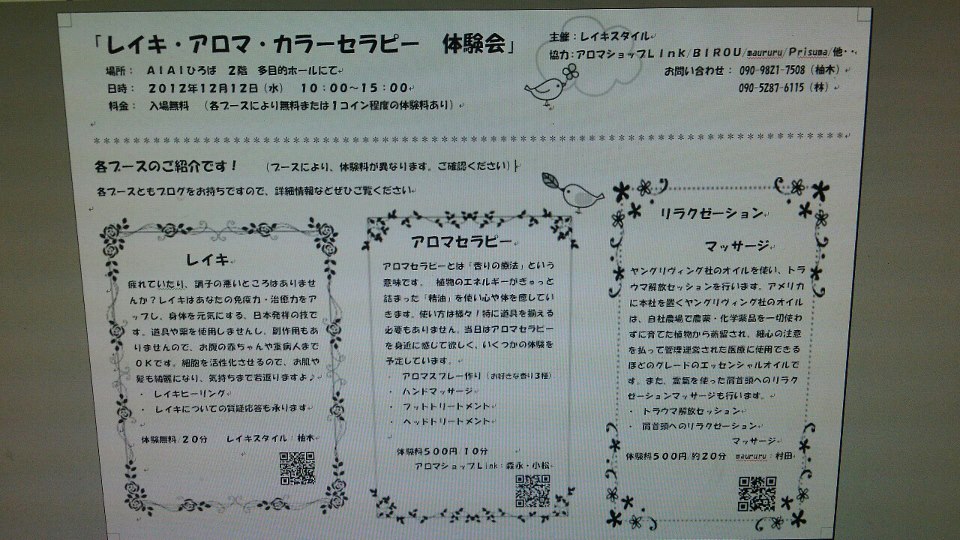 「レイキ・アロマ・カラーセラピー　体験会」
主催：レイキスタイル
協力：アロマショップLink/BIROU/maururu/Prisuma/他・・
場所：　AIAIひろば　2階　多目的ホールにて
お問い合わせ：　090-9821-7508（柚木）
日時：　2012年12月12日（水）　10：00～15：00
090-5287-6115（林）
料金：　入場無料　（各ブースにより無料または1コイン程度の体験料あり）
各ブースのご紹介です！　（ブースにより、体験料が異なります。ご確認ください）
各ブースともブログをお持ちですので、詳細情報などぜひご覧ください
レイキ
疲れていたり、調子の悪いところはありませ
んか？レイキはあなたの免疫力・治癒力をア
ップし、身体を元気にする、日本発祥の技で
す。道具や薬を使用しませんし、副作用もあ
りませんので、お腹の赤ちゃんや重病人まで
OKです。細胞を活性化させるので、お肌や
髪も綺麗になり、気持ちまで若返りますよ♪
・　レイキヒーリング
・　レイキについての質疑応答も承ります
体験無料　20分　レイキスタイル：柚木
アロマセラピー
アロマセラピーとは「香りの療法」という
意味です。　植物のエネルギーがぎゅっと
詰まった「精油」を使い心や体を癒してい
きます。使い方は様々！特に道具を揃える
必要もありません。当日はアロマセラピー
を身近に感じて欲しく、いくつかの体験を
予定しています。
・　アロマスプレー作り（お好きな香り3種）
・　ハンドマッサージ
・　フットトリートメント
・　ヘッドトリートメント
体験料500円　10分
アロマショップLink：森永・小松
リラクゼーション
マッサージ
ヤングリヴィング社のオイルを使い、トラ
ウマ解放セッションを行います。アメリカ
に本社を置くヤングリヴィング社のオイル
は、自社農場で農薬・化学薬品を一切使わ
ずに育てた植物から蒸留され、細心の注意
を払って管理運営された医療に使用できる
ほどのグレードのエッセンシャルオイルで
す。また、蒸気を使った肩首頭へのリラク
ゼーションマッサージも行います。
・　トラウマ解放セッション
・　肩首頭へのリラクゼーション
マッサージ
体験料500円/約20分　maururu：村田